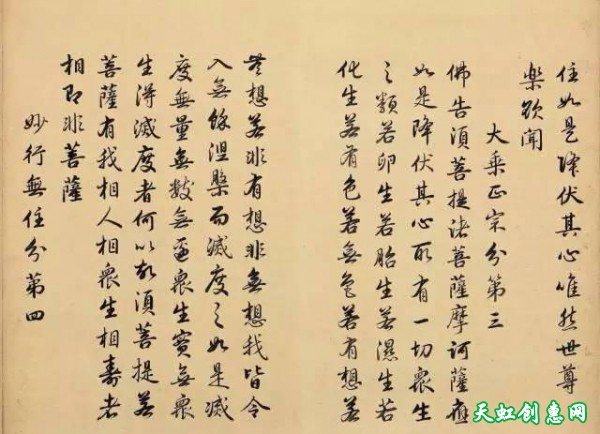 住如是降伏其心唯然世尊
樂欲聞
大乘正宗分第三
佛告須菩提諸菩薩摩訶薩應
如是降伏其心所有一切衆生
之類若卵生若胎生若濕生若
化生若有色若無色若有想若
無想若非有想非無想我皆令
入無餘涅槃而滅度之如是滅
度無量無數無邊衆生實無衆
生得滅度者何以故須菩提若
菩薩有我相人相衆生相壽者
相即非菩薩
妙行無住分第四
天虹创惠网